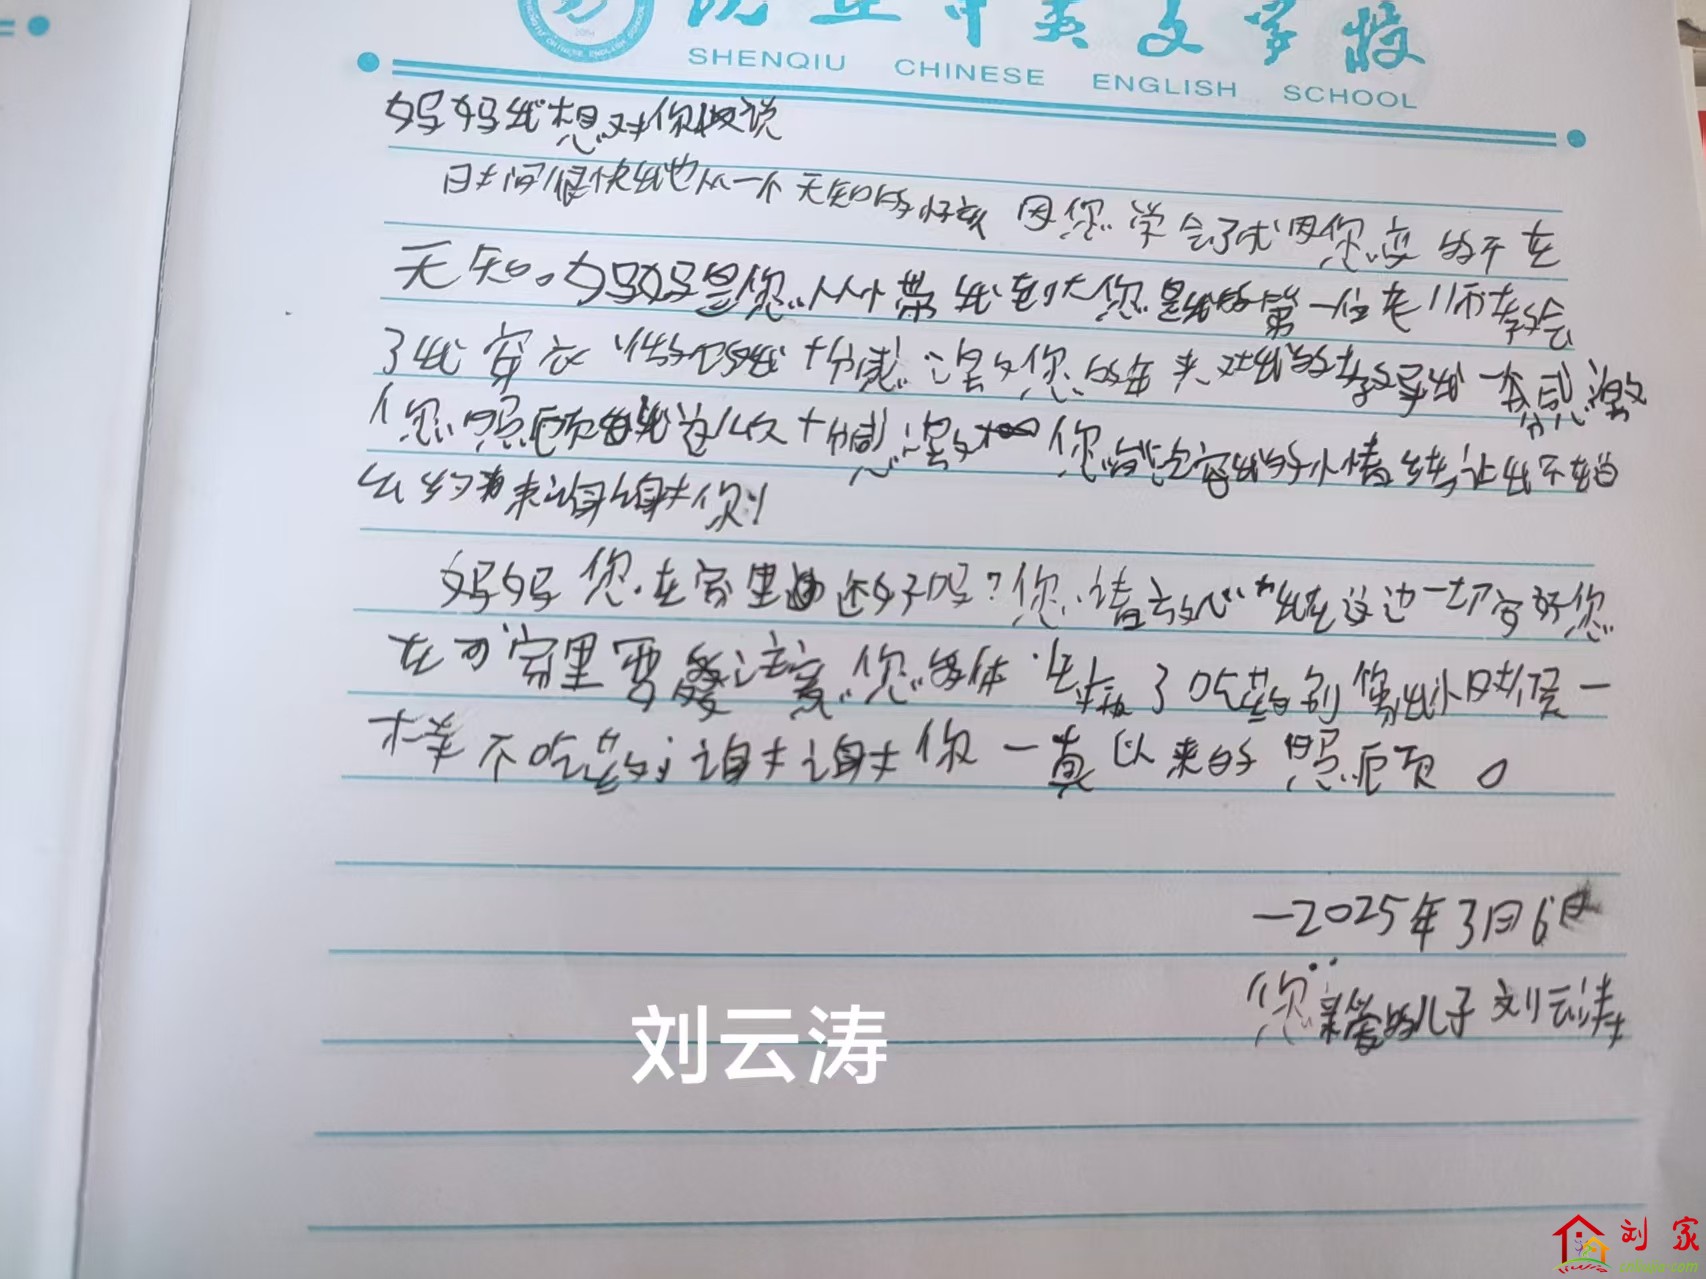 沈丘中英文学校
SHENQIU CHINESE ENGLISH SCHOOL
妈妈我想对你说
时间很快我也从一个无知的孩 因您学会了 因您变的不在
无知。妈妈是您从小带我到大您是我的第一位老师教会
了我穿衣 做 我十分感激您的 来对我的教导我 感激
您照顾我这么久十分感激 您能包容我的小情绪让我不在
么 来谢谢你!
妈妈您在家里 还好吗?您请放心 我在这边一切安好您
在 家里要 注意您身体 生病了吃药别像我小时候一
样不吃药 谢谢你一直以来的照顾。
一2025年3月6日
您亲爱的儿子刘云涛
刘云涛
刘家